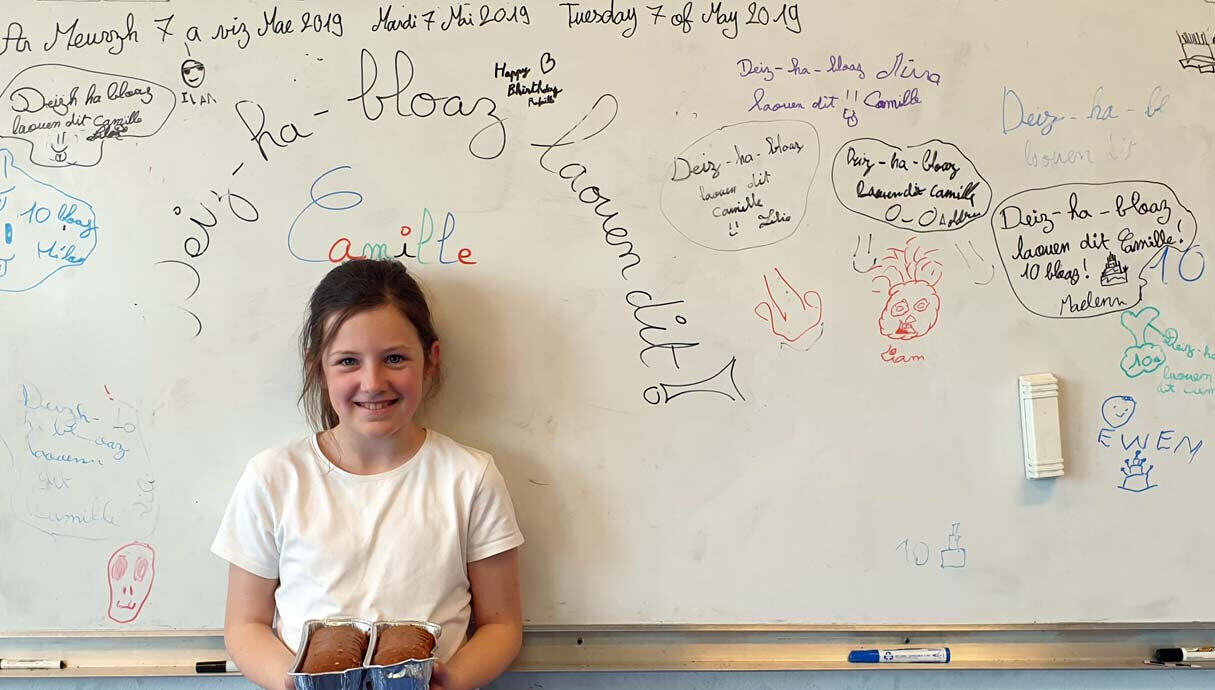 An Meurzh 7 a viz Mae 2019 Mardi 7 Mai 2019 Tuesday 7 of May 2019
Deizh ha bloaz
laouen dit Camille
ILAN
Deiz-ha-bloaz laouen dit!
Camille
Happy
Bhirthday
Deiz-ha-bloaz Nina
laouen dit !! Camille
Deiz-ha-bl
laouen dit
Deiz-ha-bloaz
laouen dit
Camille
!! Lilio
Deiz-ha-bloaz
laouen dit Camille
Deiz-ha-bloaz
laouen dit Camille!
10 bloaz!
Maelenn
10
10 bloaz
Milan
!!
Liam
10
Deiz-ha
laouen
dit Cam
EWEN
Deizh-
laouen
dit
Camille
10